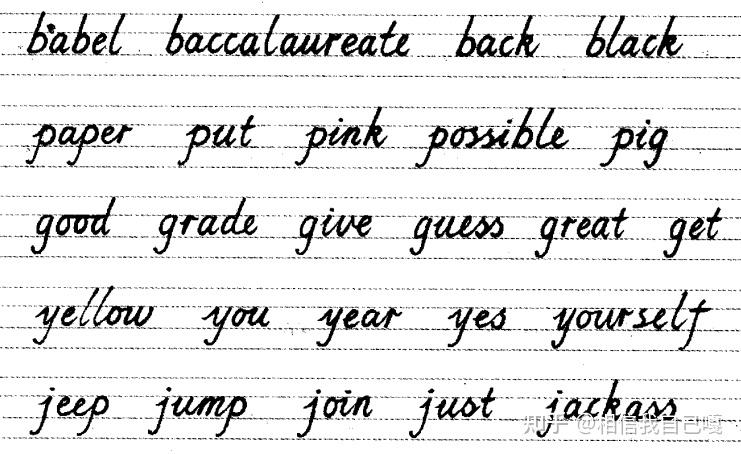 babel baccalaureate back black
paper put pink possible pig
good grade give guess great get
yellow you year yes yourself
jeep jump join just jackass
知乎 @相信我自己嘎